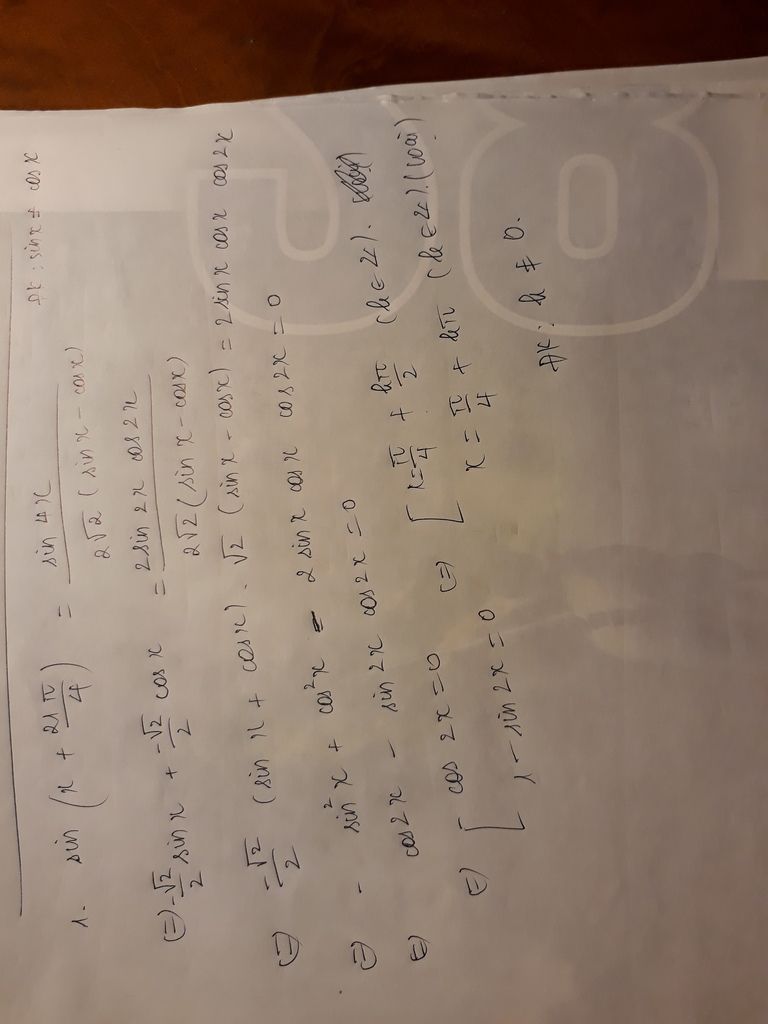 1. sin (x + 21π/4) = sin 4x / 2√2 (sin x - cos x) ĐK: sin x ≠ cos x
(=) -√2/2 sin x + -√2/2 cos x = 2 sin 2x cos 2x / 2√2 (sin x - cos x)
(=) -√2/2 (sin x + cos x) . √2 (sin x - cos x) = 2 sin x cos x cos 2x
(=) - sin²x + cos²x - 2 sin x cos x cos 2x = 0
(=) cos 2x - sin 2x cos 2x = 0
(=) [ cos 2x = 0 (=) [ x = π/4 + kπ/2 (k ∈ Z).
1 - sin 2x = 0 x = π/4 + kπ (k ∈ Z). (loại)
ĐK: k ≠ 0.